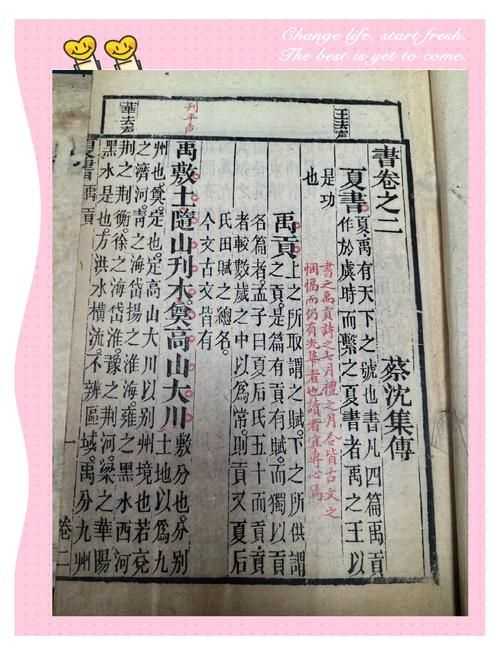 Change life, start fresh.
The best is yet to come.
王去聲
刊平聲
華去聲
書卷之二
蔡沈集傳
夏書
夏禹有天下之號也書凡四篇禹貢
作於虞時而繫之夏書者禹之王以
是功
也
書之禹貢詩之七月禮之月令皆古文之
悃愊而仍有光華者也讀者宜專心焉
禹貢
上之所取謂之賦。下之所供謂
之貢是篇有貢有賦。而獨以貢
名篇者。孟子曰夏后氏五十而貢貢
者較數歲之中以爲常。則貢又夏后
氏田賦之總名。
今文古文皆有
禹敷土隨山刊木奠高山大川
敷分也。分別
土地以爲九
州也奠定也。定高山大川以別州境也若兗
之濟河。青之海岱揚之淮海雍之黑水西河
荊之荊衡。徐之海岱淮。豫之荊河。梁之華陽
黑水是也。方洪水橫流。不辨區域。禹分九州
夏書 禹貢 一 卷二